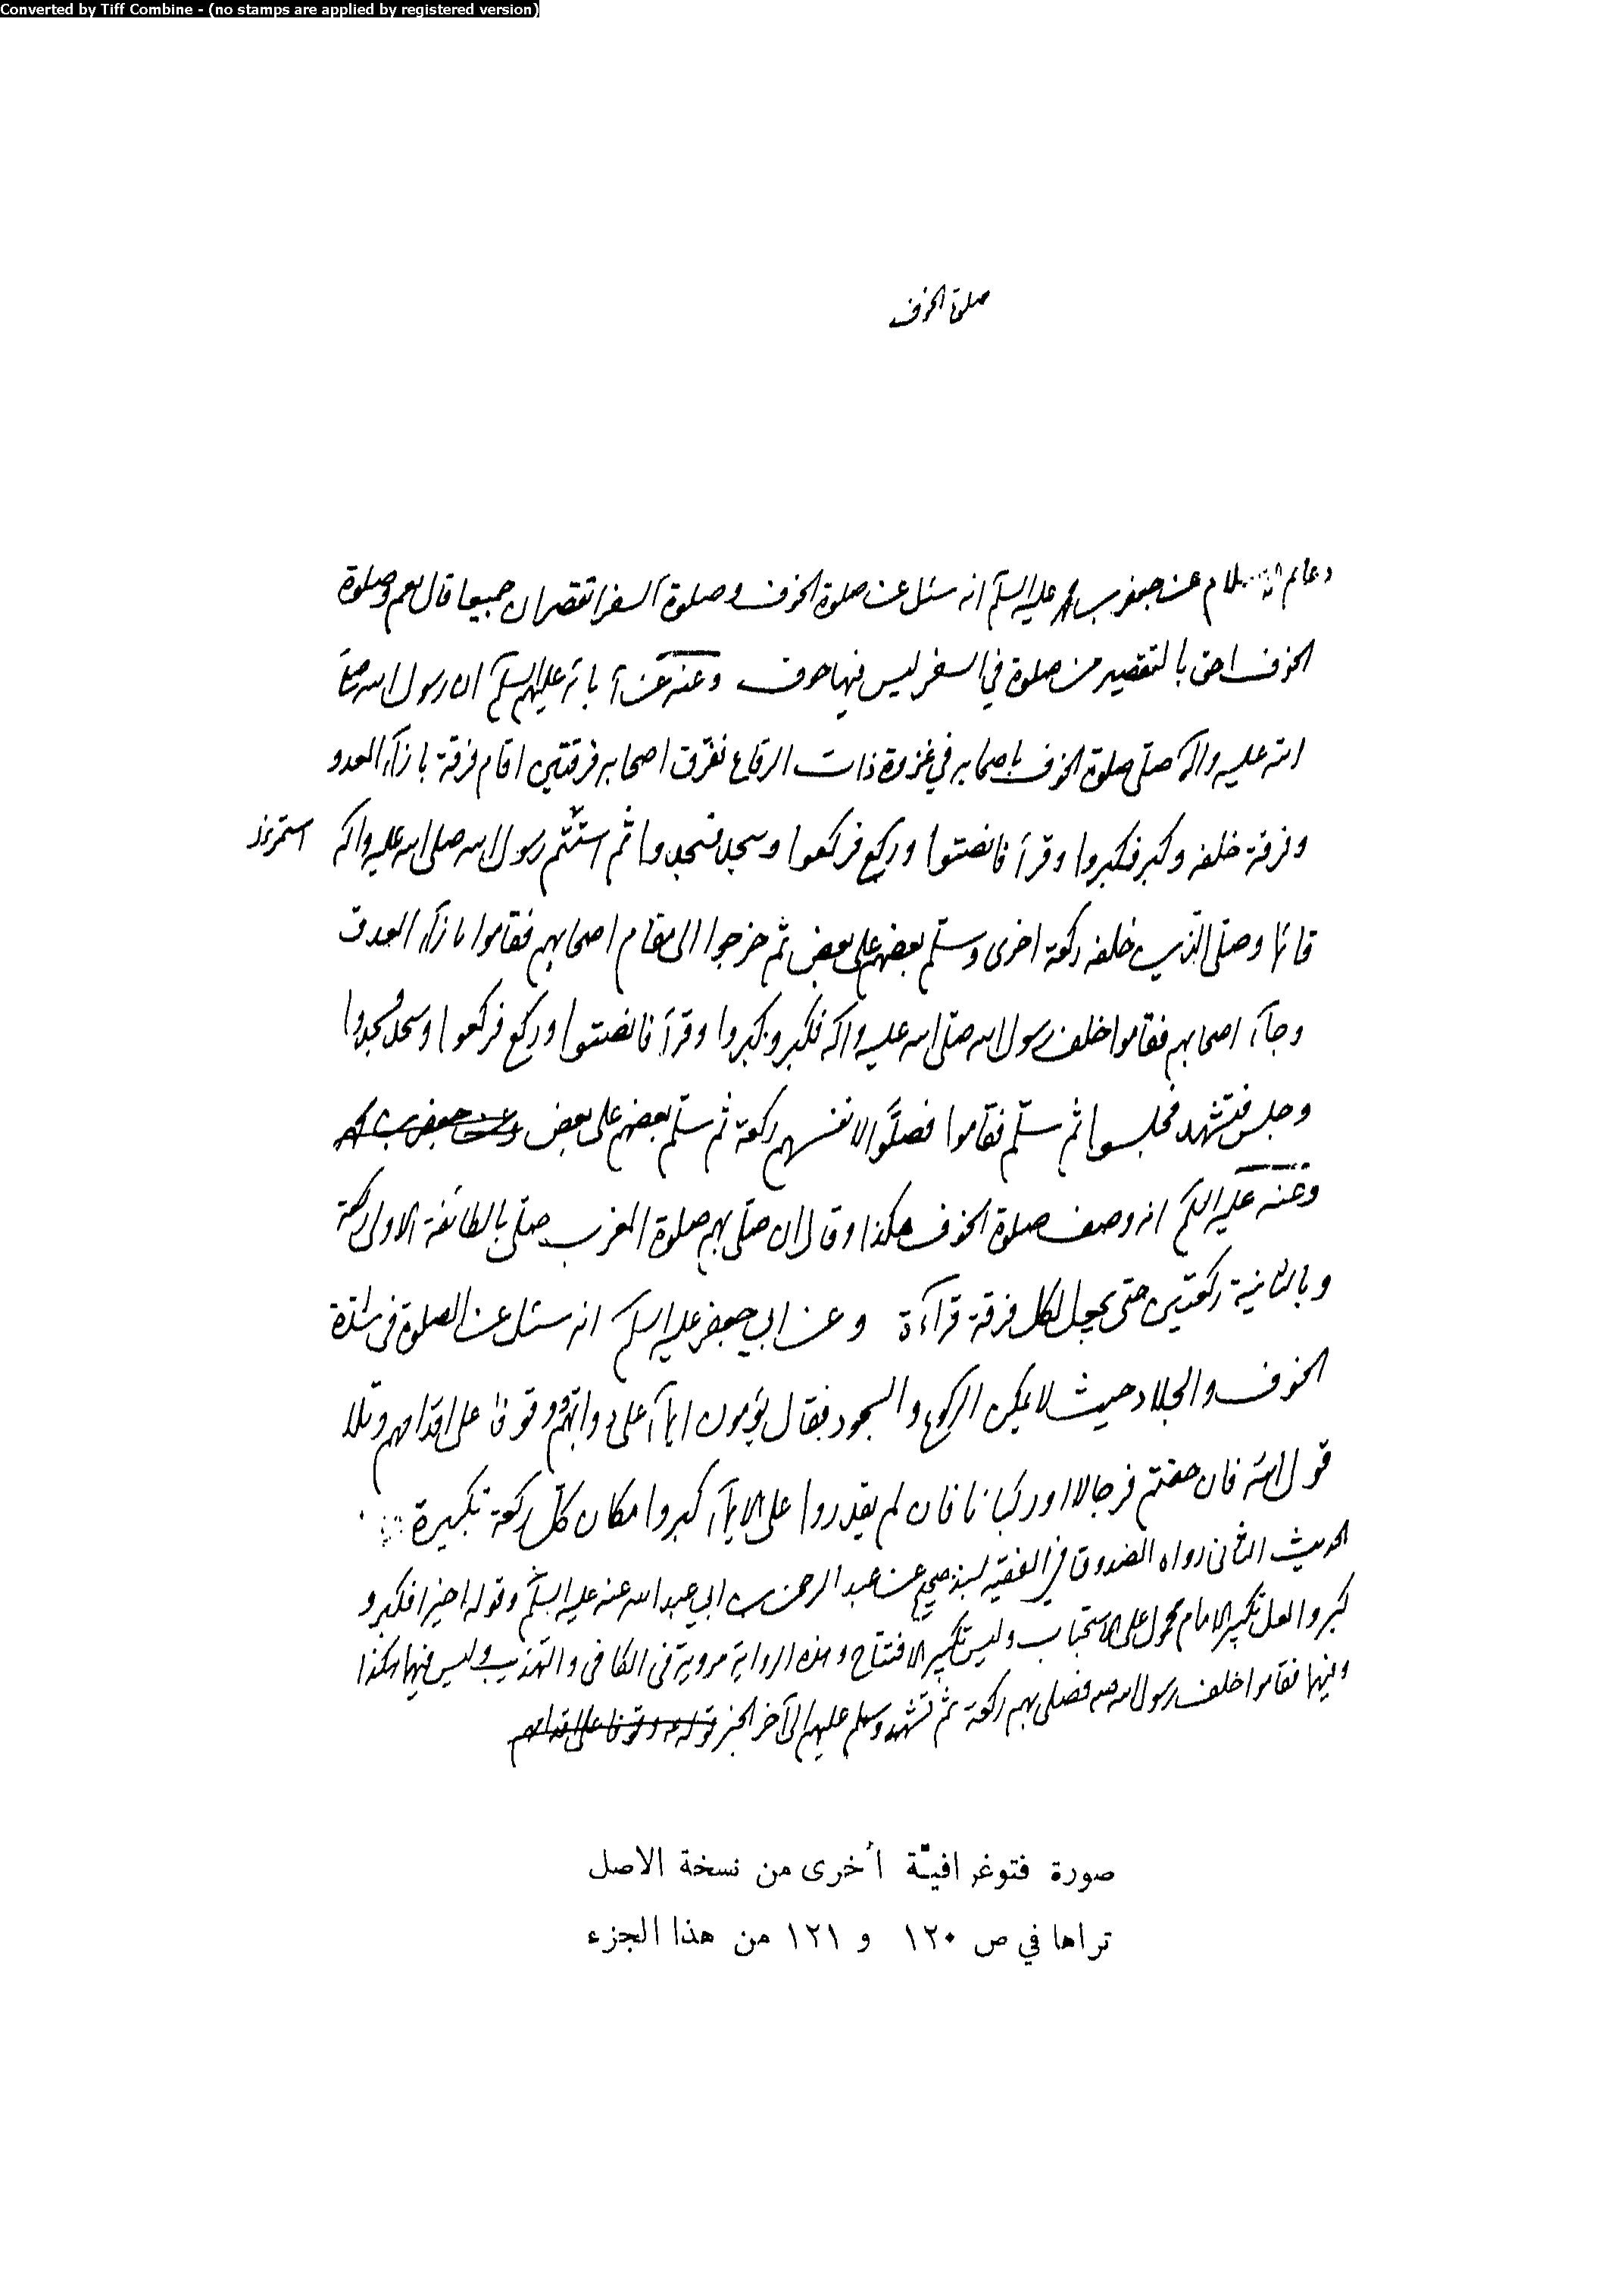 Converted by Tiff Combine - (no stamps are applied by registered version)
صلوة الخوف
دعائم عن جعفر بن محمد عليه السلم انه سئل عن صلوة الخوف وصلوة السفر اتقصران جميعا قال نعم وصلوة
الخوف احق بالتقصير من صلوة في السفر ليس فيها خوف وعنه عن آبائه عليهم السلم ان رسول الله صلى
الله عليه وآله صلى صلوة الخوف باصحابه في غزوة ذات الرقاع ففرق اصحابه فرقتين اقام فرقة بازآء العدو
وفرقة خلفه وكبر فكبروا وقرأ فانصتوا وركع فركعوا وسجد فسجدوا ثم استتم رسول الله صلى الله عليه وآله
استمر
قائما وصلى الذين خلفه ركعة اخرى وسلم بعضهم على بعض ثم خرجوا الى مقام اصحابهم فقاموا بازآء العدو
وجآء اصحابهم فقاموا خلف رسول الله صلى الله عليه وآله فكبر وكبروا وقرأ فانصتوا وركع فركعوا وسجد فسجدوا
وجلس فتشهد فجلسوا ثم سلم فقاموا فصلوا لانفسهم ركعة ثم سلم بعضهم على بعض وعن جعفر بن محمد
وعنه عليه السلم انه وصف صلوة الخوف هكذا وقال ان صلى بهم صلوة المغرب صلى بالطائفة الاولى ركعة
وبالثانية ركعتين حتى يجعل لكل فرقة قرآءة وعن ابي جعفر عليه السلم انه سئل عن الصلوة في شدة
الخوف والجلاد حيث لا يمكن الركوع والسجود فقال يؤمون ايمآء على دوابهم ووقوفا على اقدامهم وتلا
قول الله فان خفتم فرجالا او ركبانا فان لم يقدروا على الايمآء كبروا مكان كل ركعة تكبيرة
الحديث الثاني رواه الصدوق في الفقيه بسند صحيح عن عبد الرحمن بن ابي عبد الله عنه عليه السلم وقوله اخيرا فكبر و
كبروا لعل تكبير الامام محمول على الاستحباب وليس تكبير الافتتاح وهذه الرواية مروية في الكافي والتهذيب وليس فيها هكذا
وفيها فقاموا خلف رسول الله ص فصلى بهم ركعة ثم تشهد وسلم عليهم الى آخر الخبر قوله ووقوفا على اقدامهم
صورة فتوغرافيّة أخرى من نسخة الاصل
تراها في ص ١٢٠ و ١٢١ من هذا الجزء